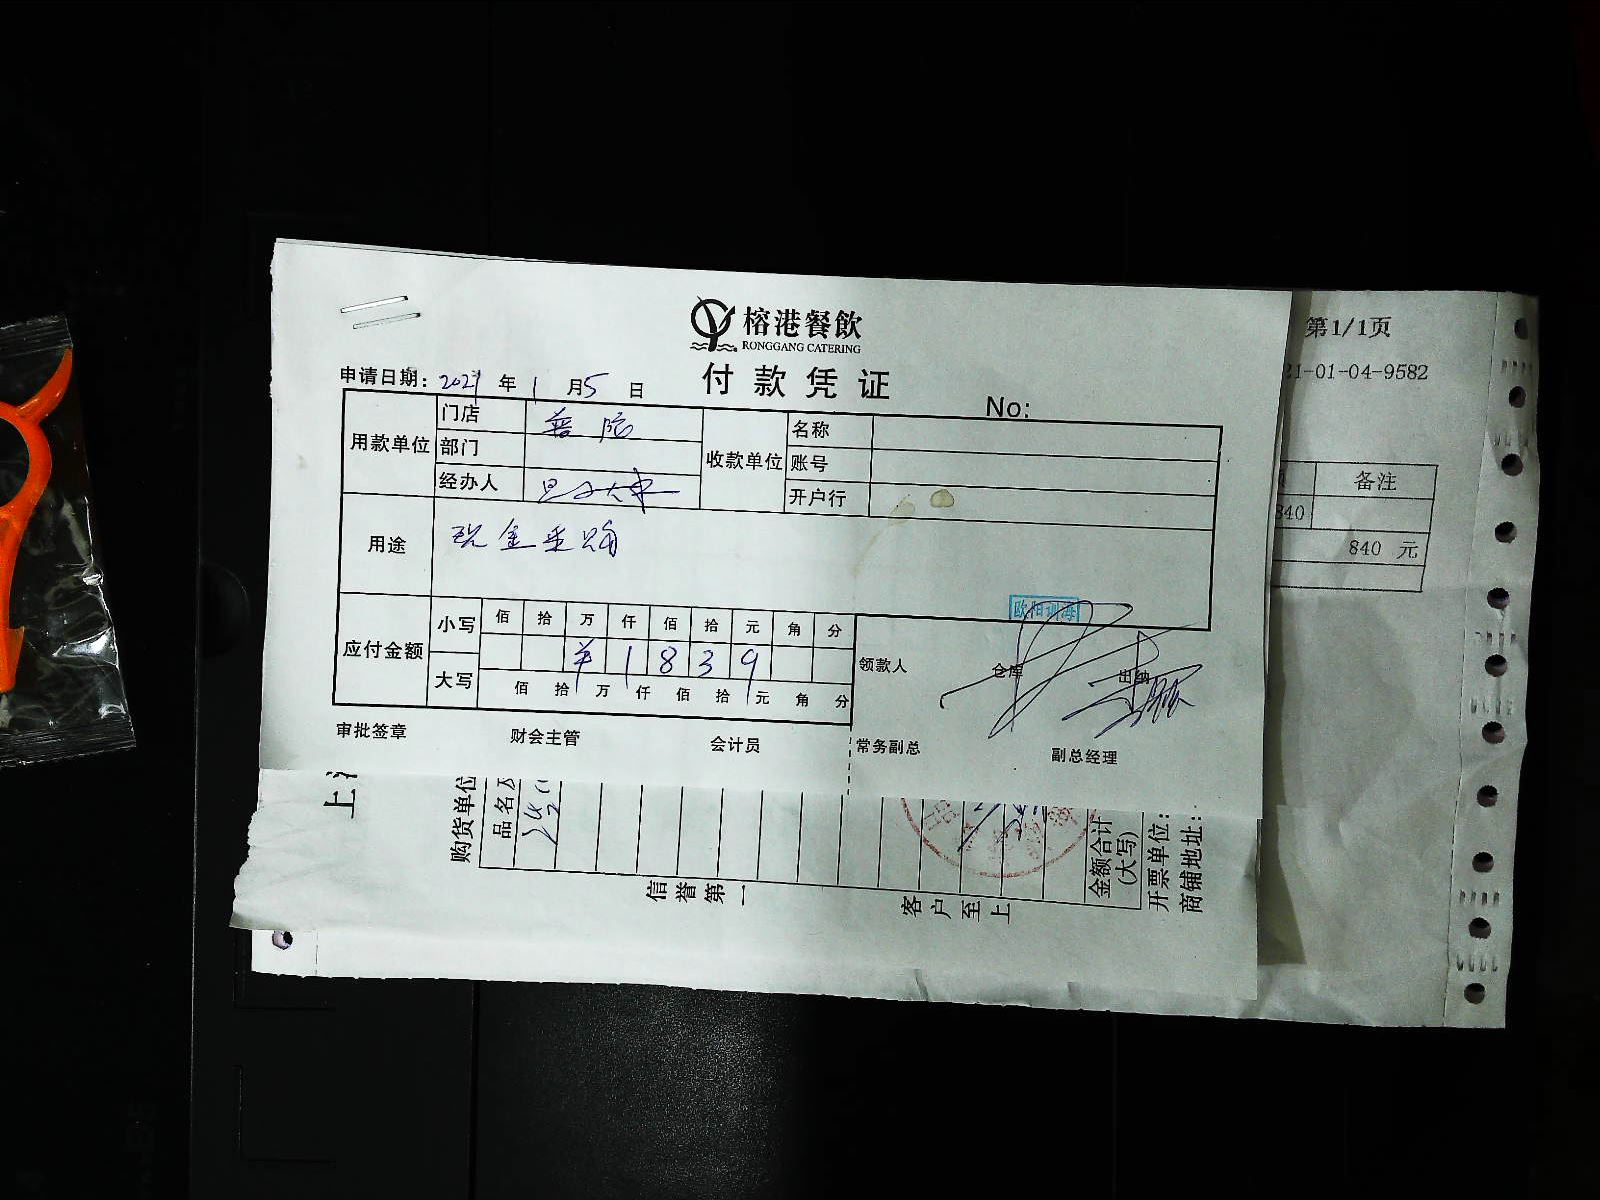 榕港餐飲
RONGGANG CATERING
付款凭证
申请日期: 2021 年 1 月 5 日
No:
用款单位 门店 普陀 收款单位 名称
部门 账号
经办人 开户行
用途 现金采购
应付金额 小写 佰 拾 万 仟 佰 拾 元 角 分
¥ 1 8 3 9
大写 佰 拾 万 仟 佰 拾 元 角 分
领款人 仓库 出纳
审批签章 财会主管 会计员 常务副总 副总经理
第1/1页
21-01-04-9582
备注
840
840 元
上
购货单位
品名及
金额合计
(大写)
开票单位:
商铺地址:
信誉第一
客户至上